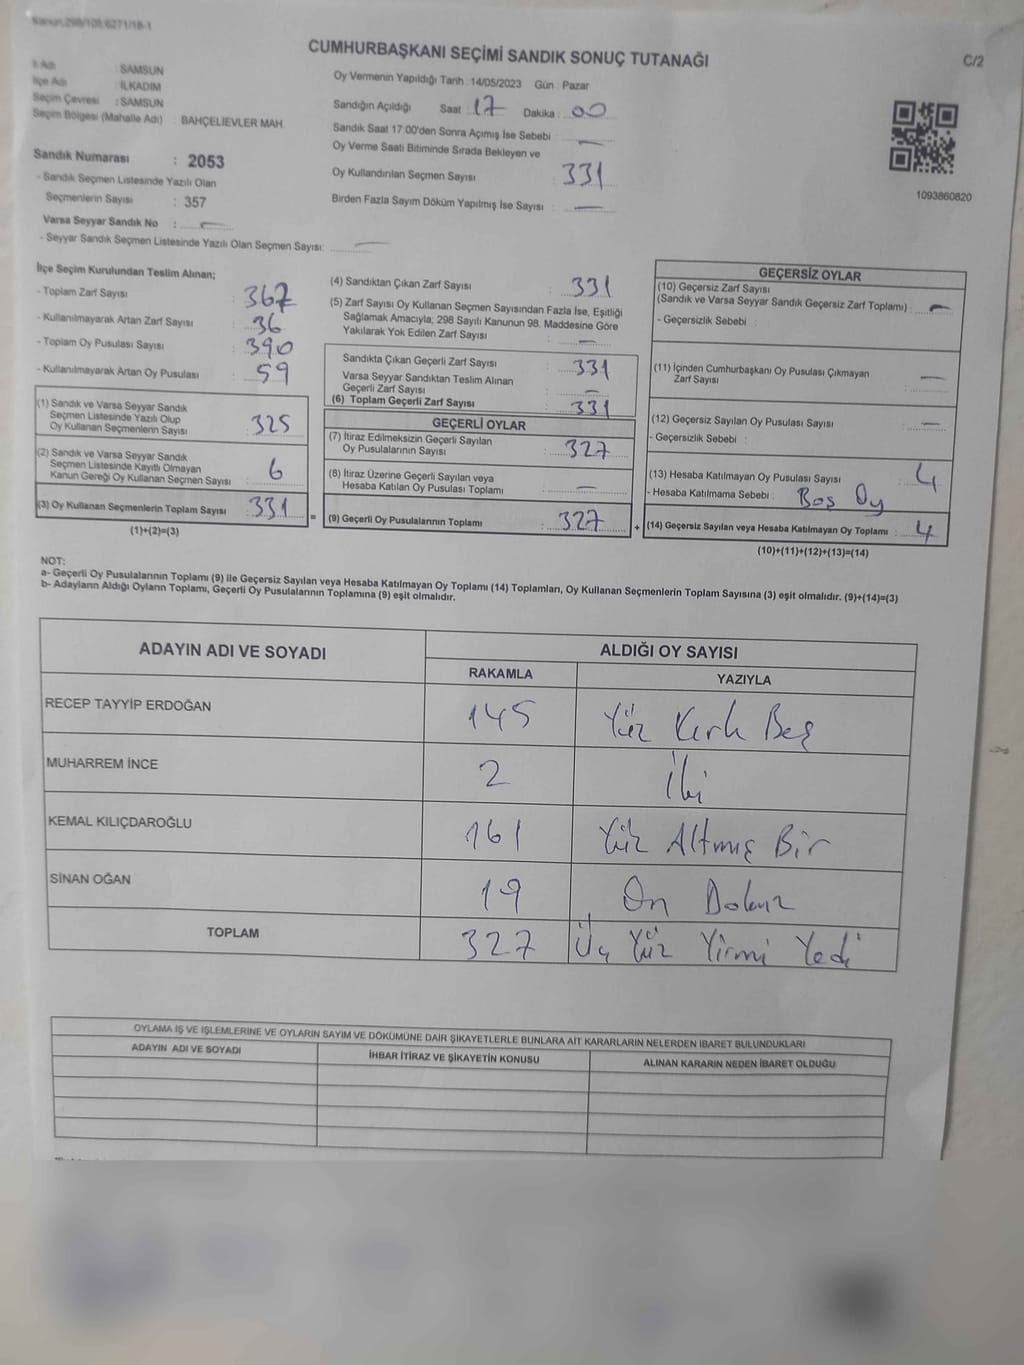 Kanun,298/105,6271/18-1
CUMHURBAŞKANI SEÇİMİ SANDIK SONUÇ TUTANAĞI
C/2
İl Adı : SAMSUN
İlçe Adı : İLKADIM
Seçim Çevresi : SAMSUN
Seçim Bölgesi (Mahalle Adı) : BAHÇELİEVLER MAH.
Sandık Numarası : 2053
- Sandık Seçmen Listesinde Yazılı Olan
Seçmenlerin Sayısı : 357
Varsa Seyyar Sandık No : —
- Seyyar Sandık Seçmen Listesinde Yazılı Olan Seçmen Sayısı: —
Oy Vermenin Yapıldığı Tarih : 14/05/2023 Gün : Pazar
Sandığın Açıldığı Saat : 17 Dakika : 00
Sandık Saat 17:00'den Sonra Açımış İse Sebebi : —
Oy Verme Saati Bitiminde Sırada Bekleyen ve
Oy Kullandırılan Seçmen Sayısı : 331
Birden Fazla Sayım Döküm Yapılmış İse Sayısı : —
1093860820
İlçe Seçim Kurulundan Teslim Alınan;
- Toplam Zarf Sayısı : 367
- Kullanılmayarak Artan Zarf Sayısı : 36
- Toplam Oy Pusulası Sayısı : 390
- Kullanılmayarak Artan Oy Pusulası : 59
(1) Sandık ve Varsa Seyyar Sandık
Seçmen Listesinde Yazılı Olup
Oy Kullanan Seçmenlerin Sayısı : 325
(2) Sandık ve Varsa Seyyar Sandık
Seçmen Listesinde Kayıtlı Olmayan
Kanun Gereği Oy Kullanan Seçmen Sayısı : 6
(3) Oy Kullanan Seçmenlerin Toplam Sayısı : 331
(1)+(2)=(3)
(4) Sandıktan Çıkan Zarf Sayısı : 331
(5) Zarf Sayısı Oy Kullanan Seçmen Sayısından Fazla İse, Eşitliği
Sağlamak Amacıyla; 298 Sayılı Kanunun 98. Maddesine Göre
Yakılarak Yok Edilen Zarf Sayısı : —
Sandıkta Çıkan Geçerli Zarf Sayısı : 331
Varsa Seyyar Sandıktan Teslim Alınan
Geçerli Zarf Sayısı : —
(6) Toplam Geçerli Zarf Sayısı : 331
GEÇERLİ OYLAR
(7) İtiraz Edilmeksizin Geçerli Sayılan
Oy Pusulalarının Sayısı : 327
(8) İtiraz Üzerine Geçerli Sayılan veya
Hesaba Katılan Oy Pusulası Toplamı : —
= (9) Geçerli Oy Pusulalarının Toplamı : 327
GEÇERSİZ OYLAR
(10) Geçersiz Zarf Sayısı
(Sandık ve Varsa Seyyar Sandık Geçersiz Zarf Toplamı) : —
- Geçersizlik Sebebi :
(11) İçinden Cumhurbaşkanı Oy Pusulası Çıkmayan
Zarf Sayısı : —
(12) Geçersiz Sayılan Oy Pusulası Sayısı : —
- Geçersizlik Sebebi :
(13) Hesaba Katılmayan Oy Pusulası Sayısı : 4
- Hesaba Katılmama Sebebi : Boş Oy
+ (14) Geçersiz Sayılan veya Hesaba Katılmayan Oy Toplamı : 4
(10)+(11)+(12)+(13)=(14)
NOT:
a- Geçerli Oy Pusulalarının Toplamı (9) ile Geçersiz Sayılan veya Hesaba Katılmayan Oy Toplamı (14) Toplamları, Oy Kullanan Seçmenlerin Toplam Sayısına (3) eşit olmalıdır. (9)+(14)=(3)
b- Adayların Aldığı Oyların Toplamı, Geçerli Oy Pusulalarının Toplamına (9) eşit olmalıdır.
ADAYIN ADI VE SOYADI ALDIĞI OY SAYISI
RAKAMLA YAZIYLA
RECEP TAYYİP ERDOĞAN 145 Yüz Kırk Beş
MUHARREM İNCE 2 İki
KEMAL KILIÇDAROĞLU 161 Yüz Altmış Bir
SİNAN OĞAN 19 On Dokuz
TOPLAM 327 Üç Yüz Yirmi Yedi
OYLAMA İŞ VE İŞLEMLERİNE VE OYLARIN SAYIM VE DÖKÜMÜNE DAİR ŞİKAYETLERLE BUNLARA AİT KARARLARIN NELERDEN İBARET BULUNDUKLARI
ADAYIN ADI VE SOYADI İHBAR İTİRAZ VE ŞİKAYETİN KONUSU ALINAN KARARIN NEDEN İBARET OLDUĞU